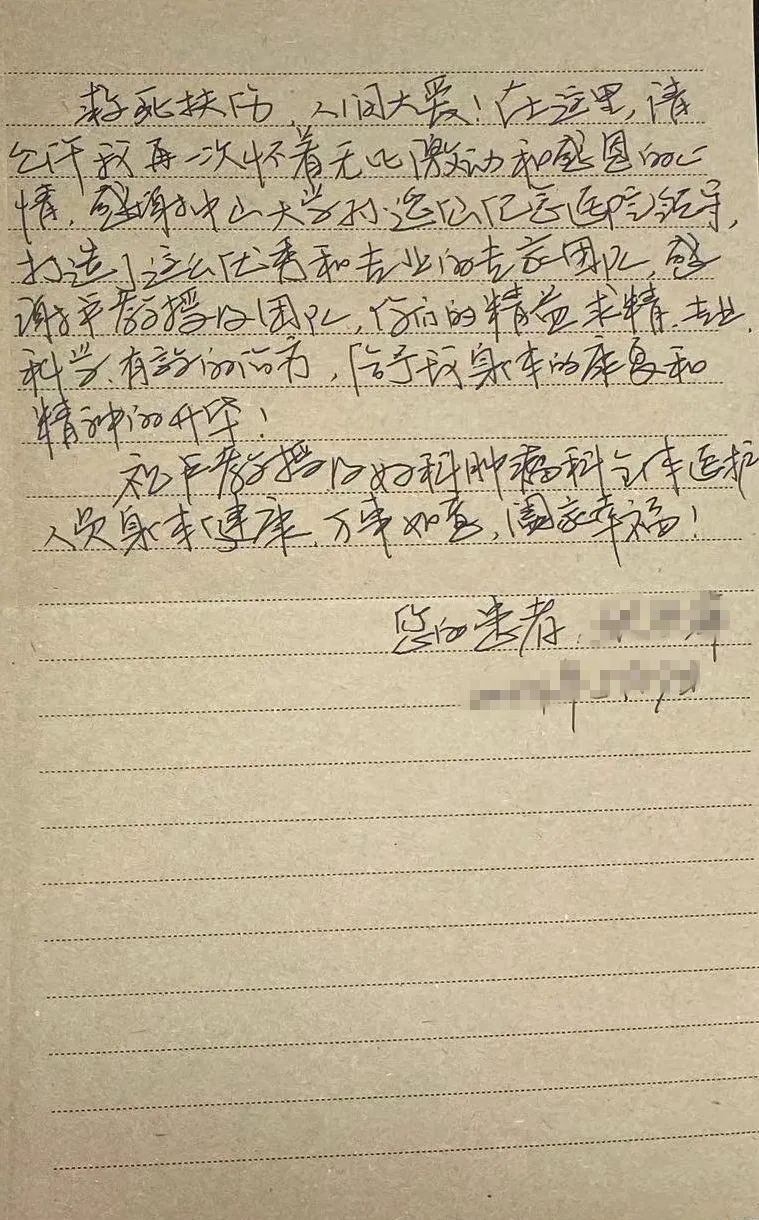 救死扶伤，人间大爱！在这里，请
允许我再一次怀着无比激动和感恩的心
情，感谢中山大学孙逸仙纪念医院领导，
打造了这么优秀和专业的专家团队，感
谢卢教授及团队，你们的精益求精、专业、
科学、有效的治疗，给予我身体的康复和
精神的升华！
祝卢教授及妇科肿瘤科全体医护
人员身体健康，万事如意，阖家幸福！
您的患者：